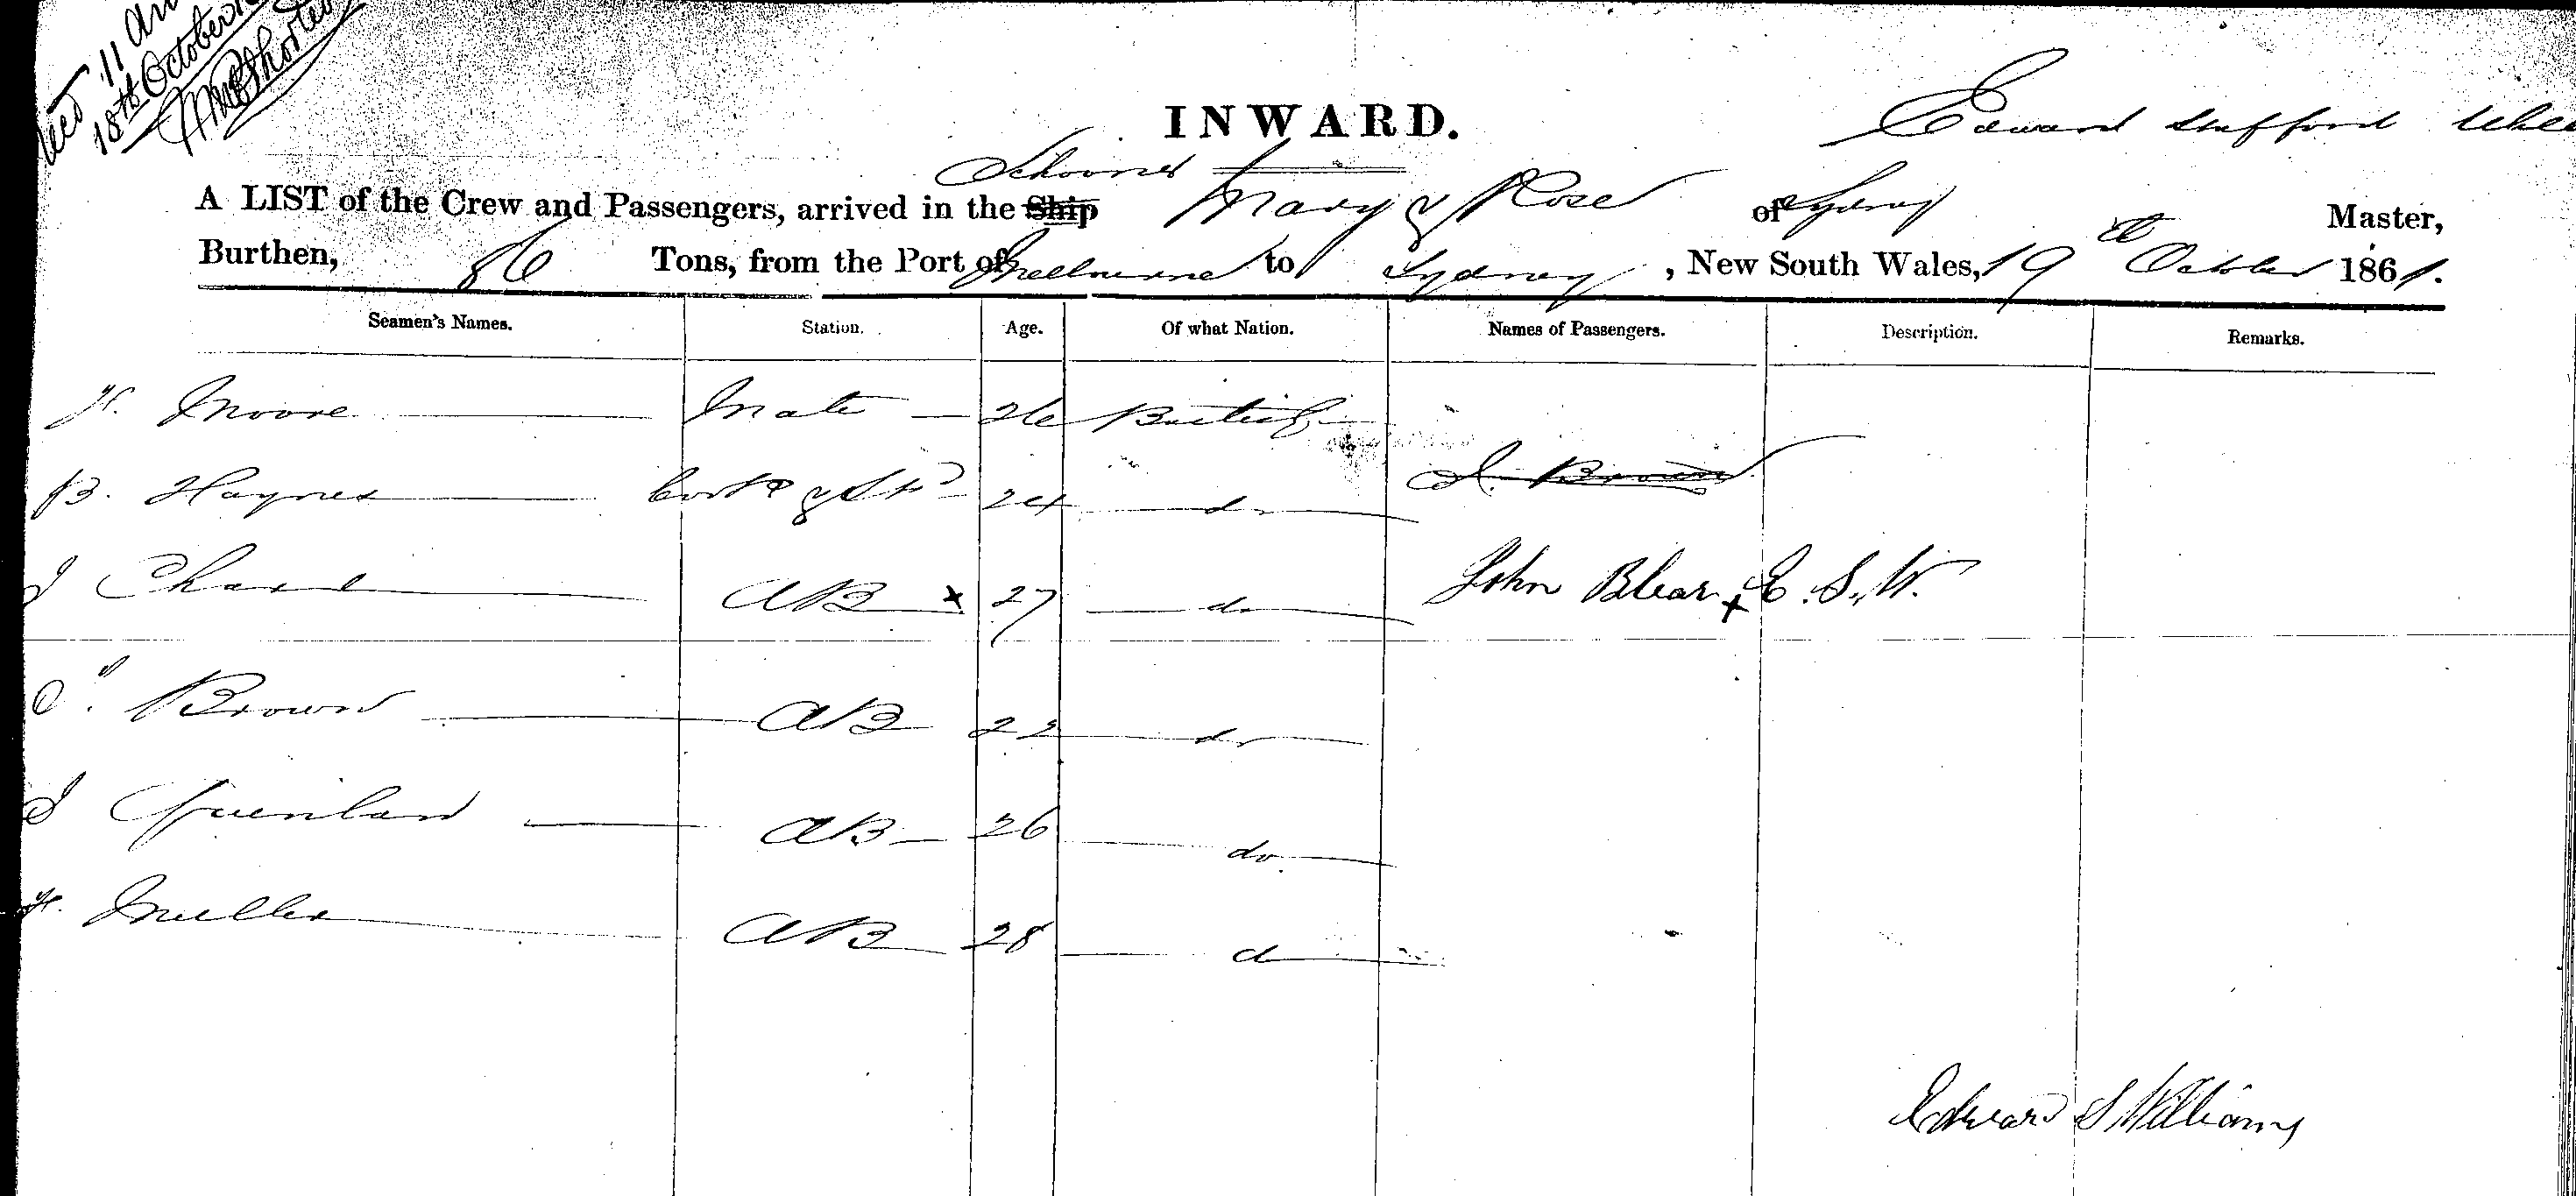 11
18th October
INWARD.
Edward Stafford
Schooner
A LIST of the Crew and Passengers, arrived in the Ship Mary & Rose of Sydney Master,
Burthen, 86 Tons, from the Port of Melbourne to Sydney, New South Wales, 19th October 1861.
Seamen's Names. Station. Age. Of what Nation. Names of Passengers. Description. Remarks.
H. Moore Mate 26 British
B. Haynes Cook & 24 do J. Brown
J Chard AB x 27 do John Blear x E. S. W.
J. Brown AB 22 do
J Quinlan AB 26 do
H. Muller AB 28 do
Edward S Williams